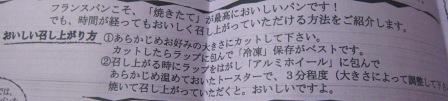 フランスパンこそ、「焼きたて」が最高においしいパンです！
でも、時間が経ってもおいしく召し上がっていただける方法をご紹介します。
おいしい召し上がり方 ①あらかじめお好みの大きさにカットして下さい。
カットしたらラップに包んで「冷凍」保存がベストです。
②召し上がる時にラップをはがし「アルミホイール」に包んで
あらかじめ温めておいたトースターで、3分程度（大きさによって調整して
焼いて召し上がっていただくと。おいしいですよ。